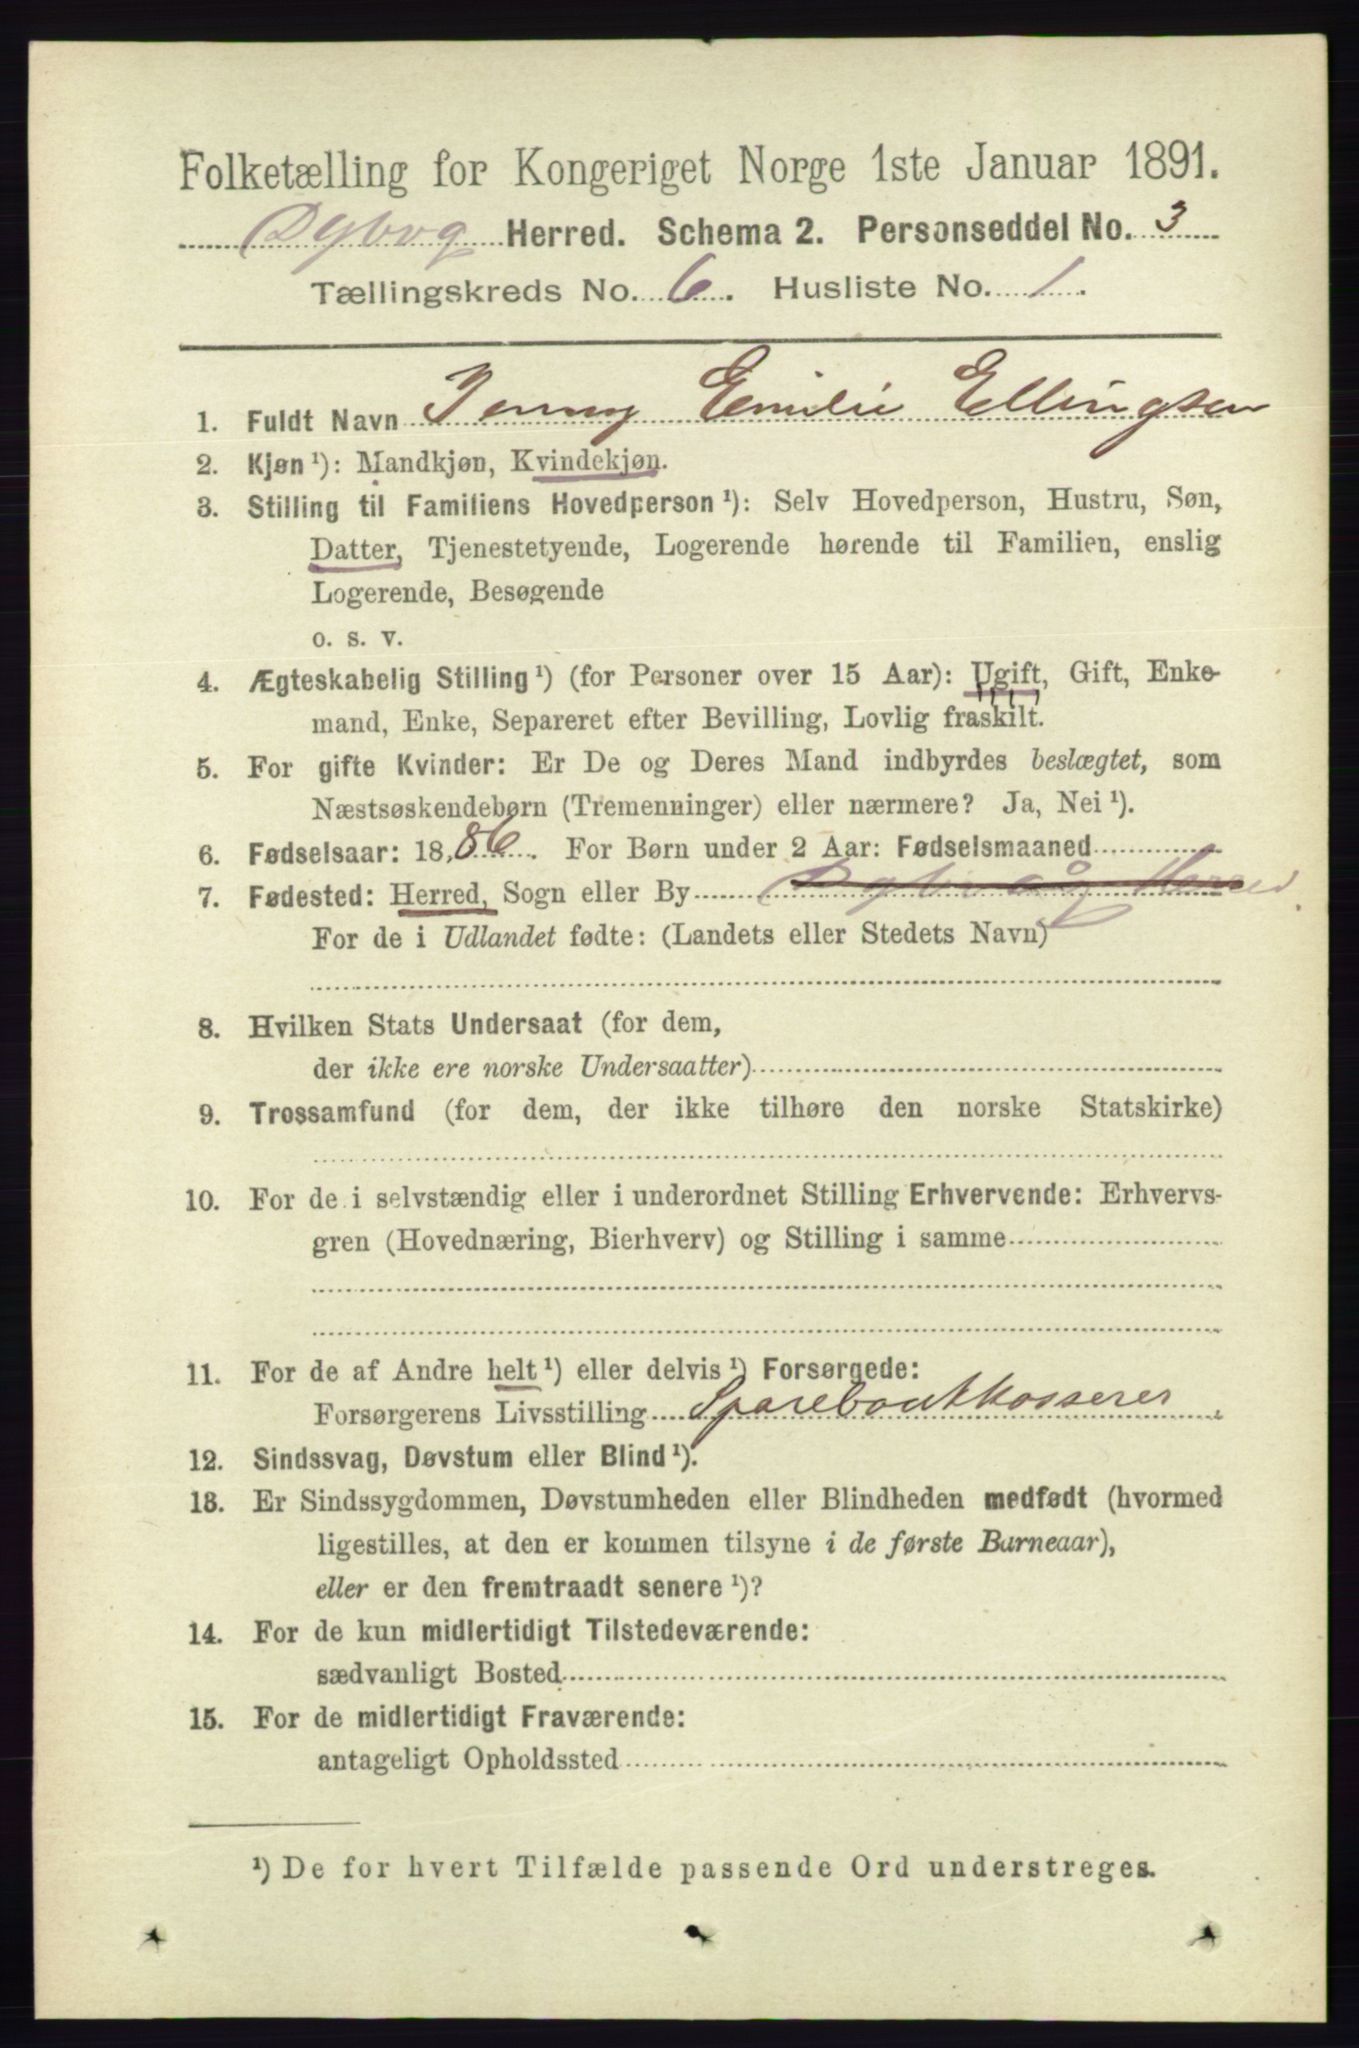 Folketælling for Kongeriget Norge 1ste Januar 1891.
Dybvg Herred. Schema 2. Personseddel No. 3
Tællingskreds No. 6. Husliste No. 1.
1. Fuldt Navn Jenny Emilie Ellingsen
2. Kjøn¹): Mandkjøn, Kvindekjøn.
3. Stilling til Familiens Hovedperson¹): Selv Hovedperson, Hustru, Søn,
Datter, Tjenestetyende, Logerende hørende til Familien, enslig
Logerende, Besøgende
o. s. v.
4. Ægteskabelig Stilling¹) (for Personer over 15 Aar): Ugift, Gift, Enke-
mand, Enke, Separeret efter Bevilling, Lovlig fraskilt.
5. For gifte Kvinder: Er De og Deres Mand indbyrdes beslægtet, som
Næstsøskendebørn (Tremenninger) eller nærmere? Ja, Nei¹).
6. Fødselsaar: 1886. For Børn under 2 Aar: Fødselsmaaned
7. Fødested: Herred, Sogn eller By Dybvåg Herred
For de i Udlandet fødte: (Landets eller Stedets Navn)
8. Hvilken Stats Undersaat (for dem,
der ikke ere norske Undersaatter)
9. Trossamfund (for dem, der ikke tilhøre den norske Statskirke)
10. For de i selvstændig eller i underordnet Stilling Erhvervende: Erhvervs-
gren (Hovednæring, Bierhverv) og Stilling i samme
11. For de af Andre helt¹) eller delvis¹) Forsørgede:
Forsørgerens Livsstilling Sparebankkasserer
12. Sindssvag, Døvstum eller Blind¹).
13. Er Sindssygdommen, Døvstumheden eller Blindheden medfødt (hvormed
ligestilles, at den er kommen tilsyne i de første Barneaar),
eller er den fremtraadt senere¹)?
14. For de kun midlertidigt Tilstedeværende:
sædvanligt Bosted
15. For de midlertidigt Fraværende:
antageligt Opholdssted
¹) De for hvert Tilfælde passende Ord understreges.